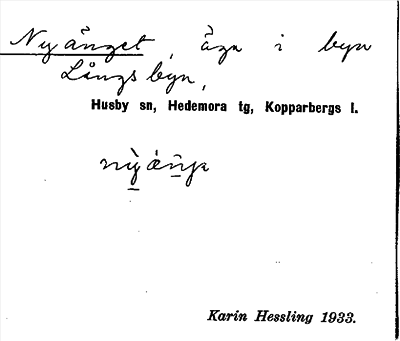 Nyänget, äga i byn
Långsbyn,
Husby sn, Hedemora tg, Kopparbergs l.
Karin Hessling 1933.